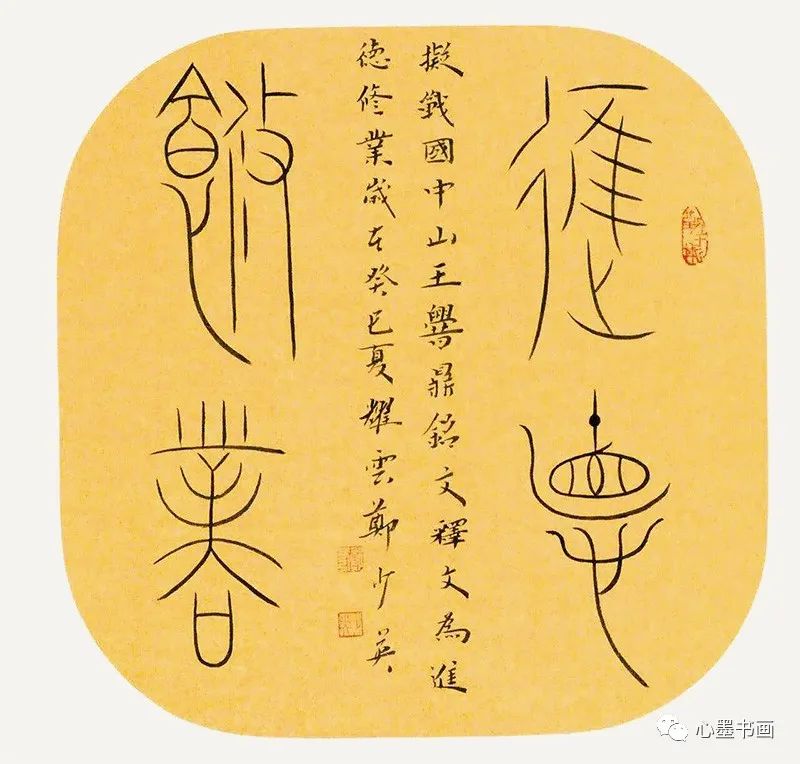 進德
修業
擬戰國中山王鼎銘文釋文為進
德修業歲在癸巳夏耀雲鄭少英
心墨书画